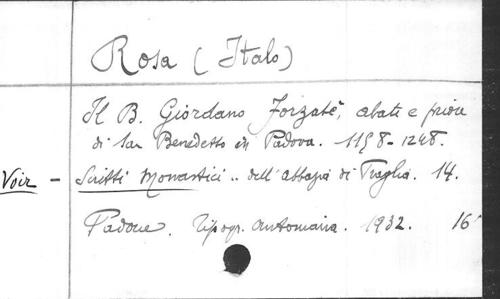 Rosa (Italo)
Il B. Giordano Forzatè, abate e priore
di San Benedetto in Padova. 1158-1248.
Voir - Scritti Monastici .. dell'abbazia di Praglia. 14.
Padoue. Tipogr. Antoniana. 1932. 16°